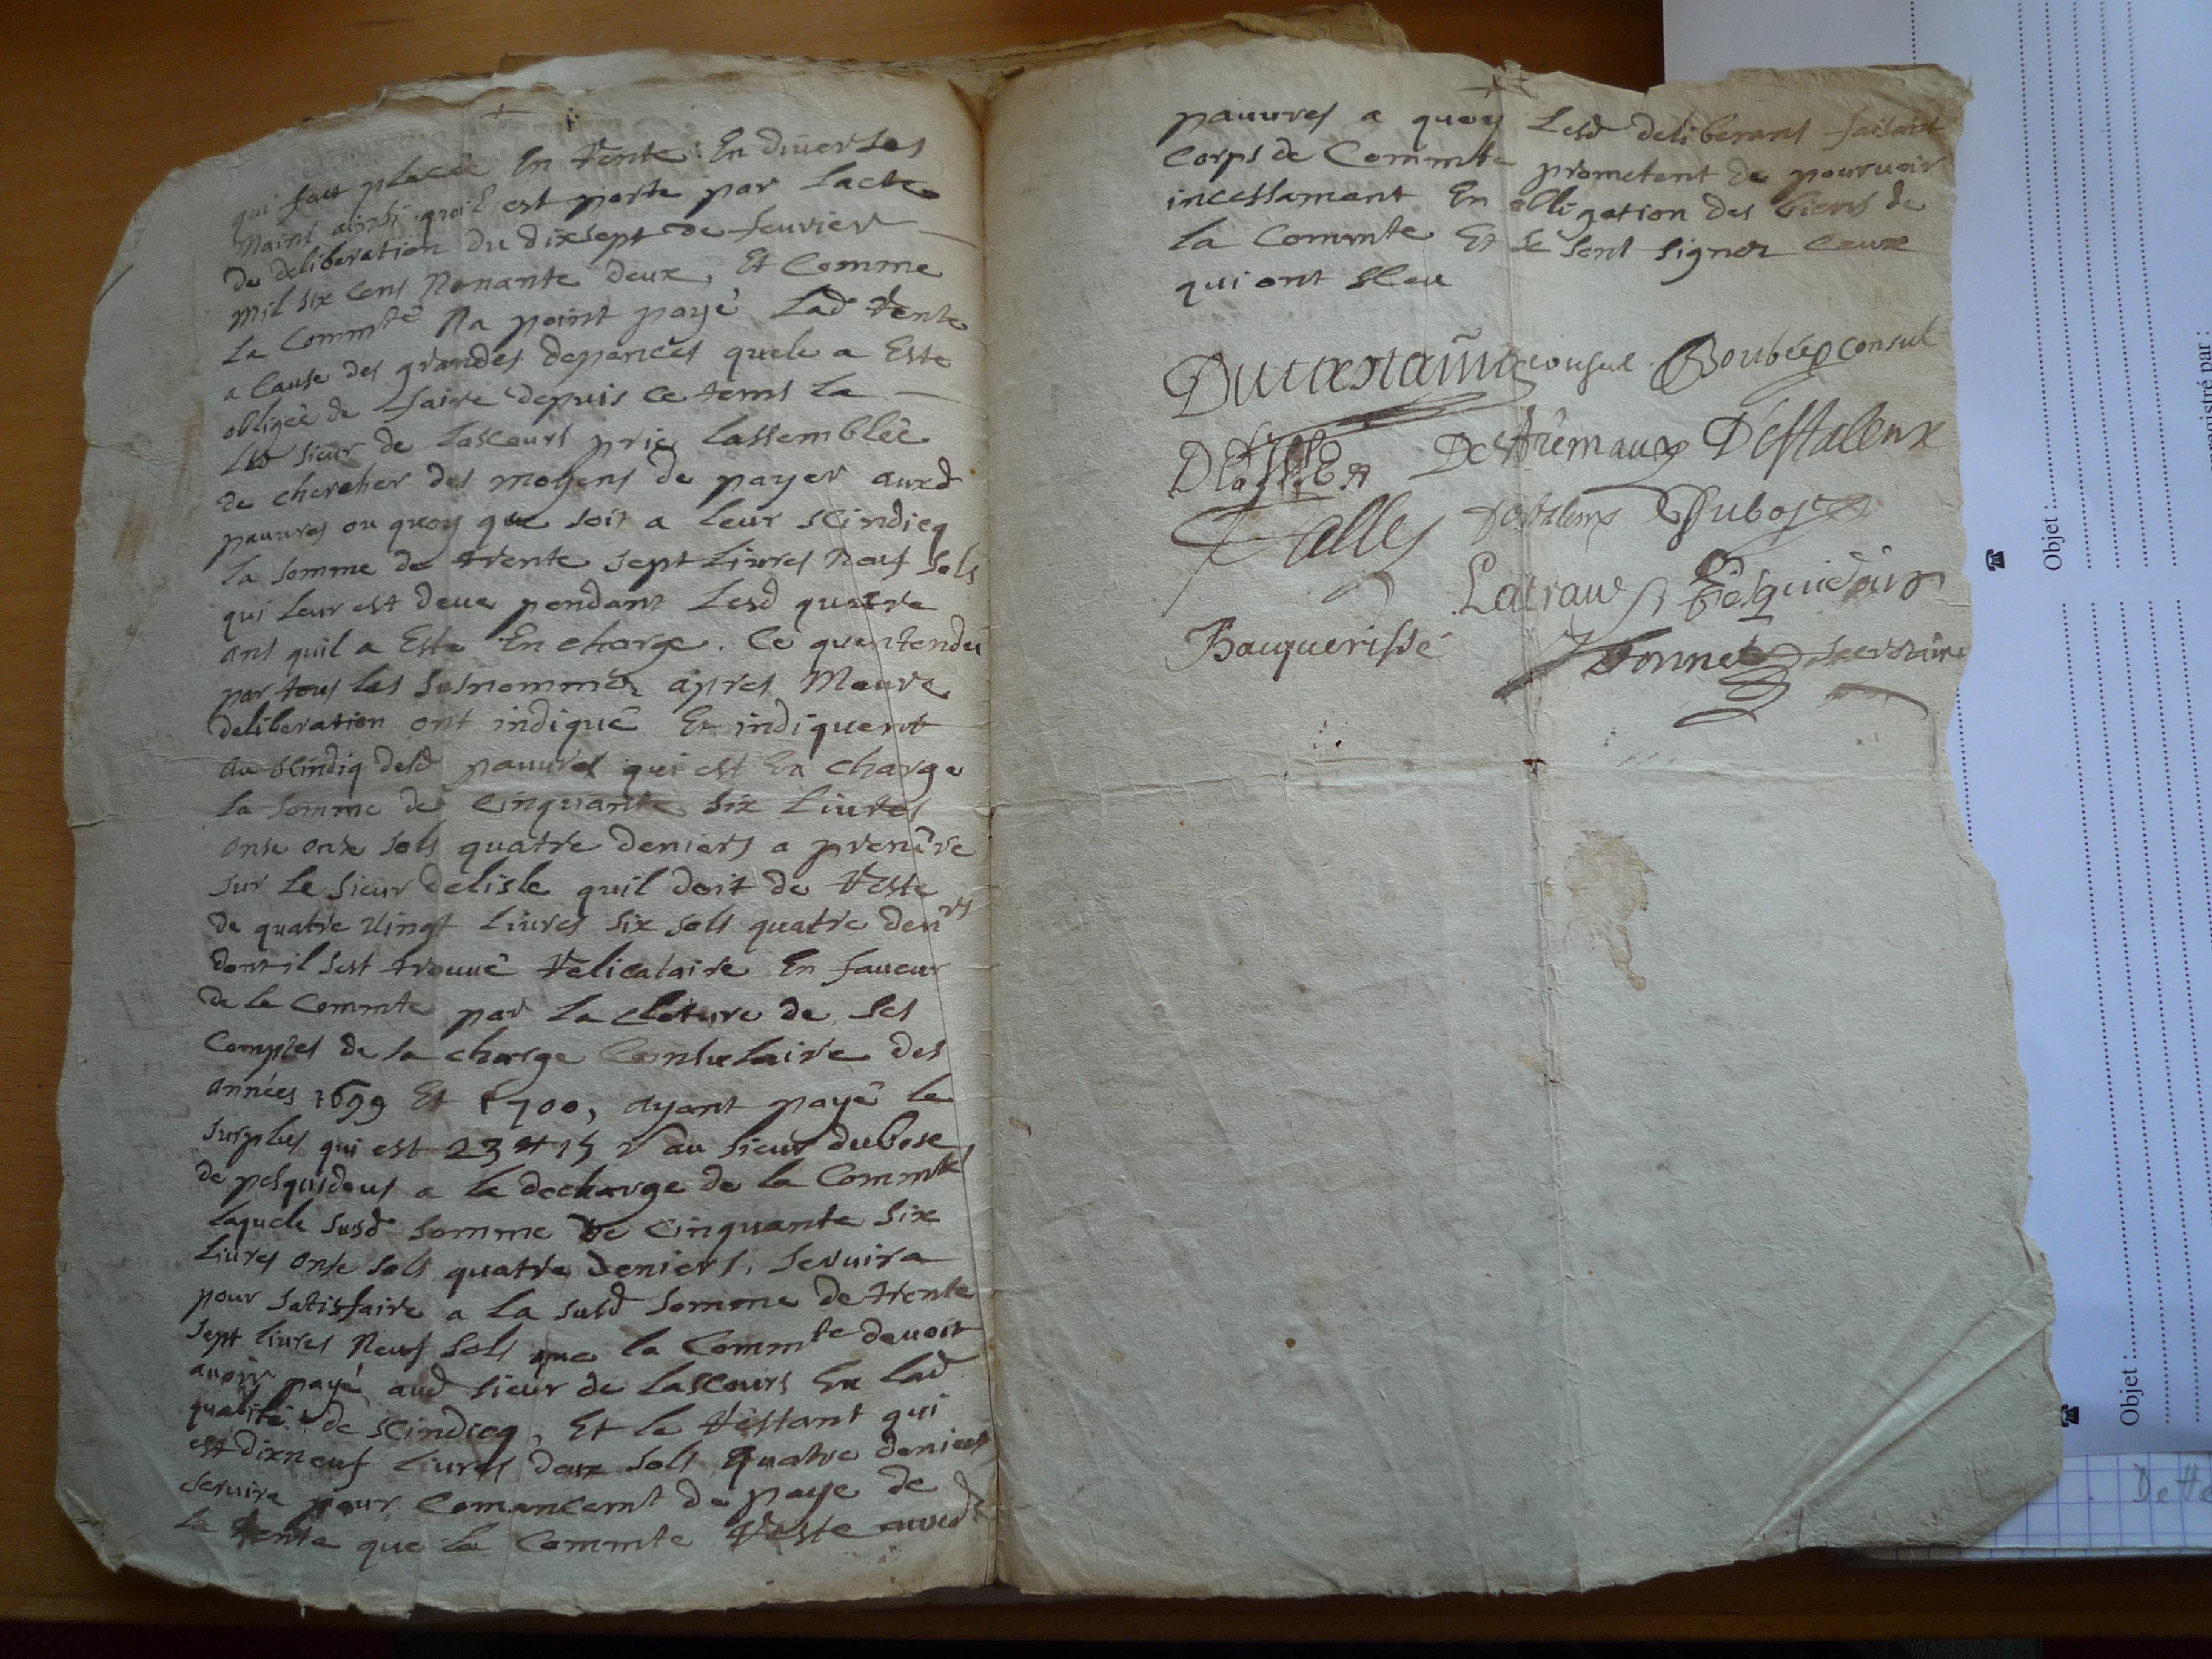 qui fut placée En rente En diverses
mains ainsi quoil est porte par lacte
de deliberation du dixsept de feuvrier
mil six cens Nonante deux, Et Comme
La Commte Na point payé Lad rente
a Cause des grandes depances quele a Este
obligée de faire depuis ce tems la
Led sieur de Lascours prie Lassemblée
de chercher des moyens de payer auxd
pauvres ou quoy que soit a leur scindicq
La somme de trente sept Livres Neuf Sols
qui leur est deue pendant Lesd quatre
ans quil a Este En charge. Ce quentendu
par tous les susnommés apres Meure
deliberation ont indiqué Et indiquent
au scindiq desd pauvres qui est En charge
La somme de cinquante six Livres
onse onse sols quatre deniers a prendre
sur Le sieur delisle quil doit de reste
de quatre vingt Livres six sols quatre denrs
dont il sest trouvé relicataire En faveur
de la Commte par La cloture de ses
Comptes de sa charge Consulaire des
années 1699 Et 1700, ayant payé le
surplus qui est 23 ₶ 15 s au sieur dubosc
de pesquidous a la decharge de la Commte
Laquele susd somme de cinquante six
Livres onse sols quatre deniers, servira
pour satisfaire a La susd somme de trente
sept livres Neuf sols que la Commte devoit
avoir payé aud sieur de Lascours En lad
qualité de scindicq, Et le restant qui
est dixneuf Livres deux sols quatre deniers
servira pour Comancemt de paye de
la rente que la Commte reste auxd
pauvres a quoy Lesd deliberans faisant
Corps de Commte prometent de pourvoir
incessament En obligation des biens de
La Commte Et se sont signez Ceux
qui ont sceu
consul Boubée consul
Destremaux D'Estaleux
Dalles Dubosc
Latrave Pesquidoux
Bauquerisse Bonnet secretaire
Objet :
Objet :